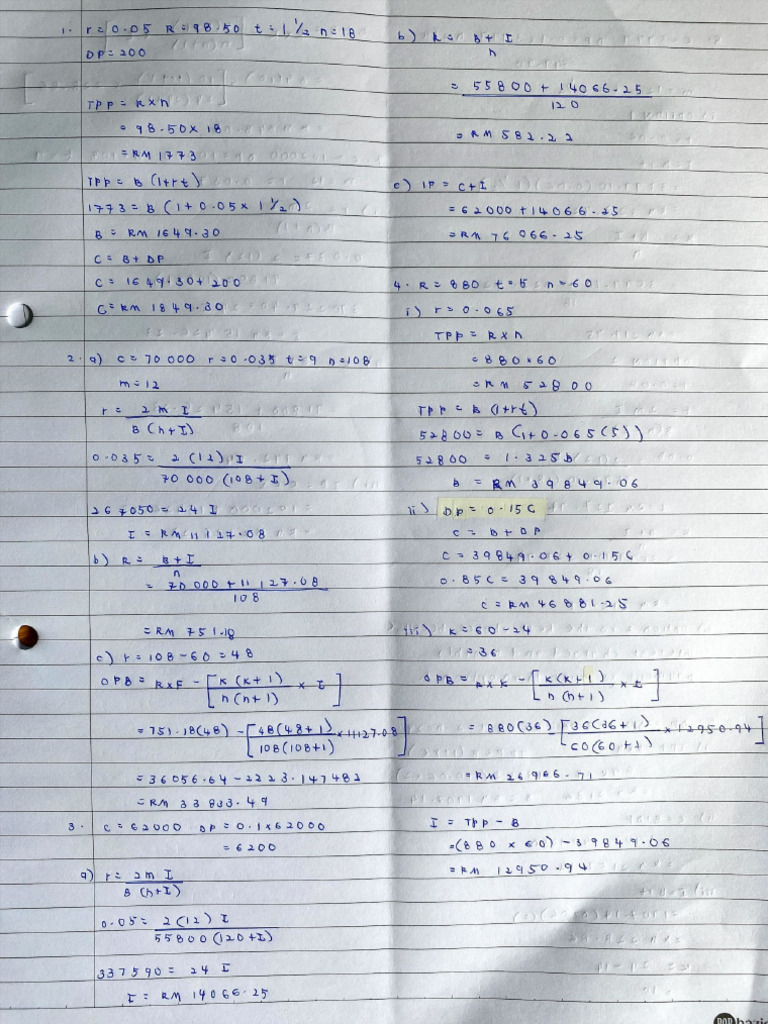 1. r = 0.05 R = 98.50 t = 1 1/2 n = 18
DP = 200
TPP = R x n
= 98.50 x 18
= RM 1773
TPP = B (1+rt)
1773 = B (1 + 0.05 x 1 1/2)
B = RM 1649.30
C = B + DP
C = 1649.30 + 200
C = RM 1849.30
2. a) C = 70 000 r = 0.035 t = 9 n = 108
m = 12
r = 2 m I
B (n+I)
0.035 = 2 (12) I
70 000 (108 + I)
267050 = 24 I
I = RM 11127.08
b) R = B + I
n
= 70 000 + 11 127.08
108
= RM 751.18
c) r = 108 - 60 = 48
OPB = R x F - [ K (K+1)
n (n+1) x I ]
= 751.18 (48) - [ 48 (48 + 1)
108 (108+1) x 11127.08 ]
= 36056.64 - 2223.147482
= RM 33 833.49
3. C = 62000 DP = 0.1 x 62000
= 6200
a) r = 2 m I
B (n+I)
0.05 = 2 (12) I
55800 (120 + I)
337590 = 24 I
I = RM 14066.25
b) R = B + I
n
= 55800 + 14066.25
120
= RM 582.22
c) IP = C + I
= 62000 + 14066.25
= RM 76 066.25
4. R = 880 t = 5 n = 60
i) r = 0.065
TPP = R x n
= 880 x 60
= RM 52800
TPP = B (1+rt)
52800 = B (1 + 0.065 (5))
52800 = 1.325 B
B = RM 39849.06
ii) DP = 0.15 C
C = B + DP
C = 39849.06 + 0.15 C
0.85 C = 39 849.06
C = RM 46881.25
iii) K = 60 - 24
= 36
OPB = R x K - [ K (K+1)
n (n+1) x I ]
= 880 (36) [ 36 (36 + 1)
60 (60 + 1) x 12950.94 ]
= RM 26966.71
I = TPP - B
= (880 x 60) - 39849.06
= RM 12950.94